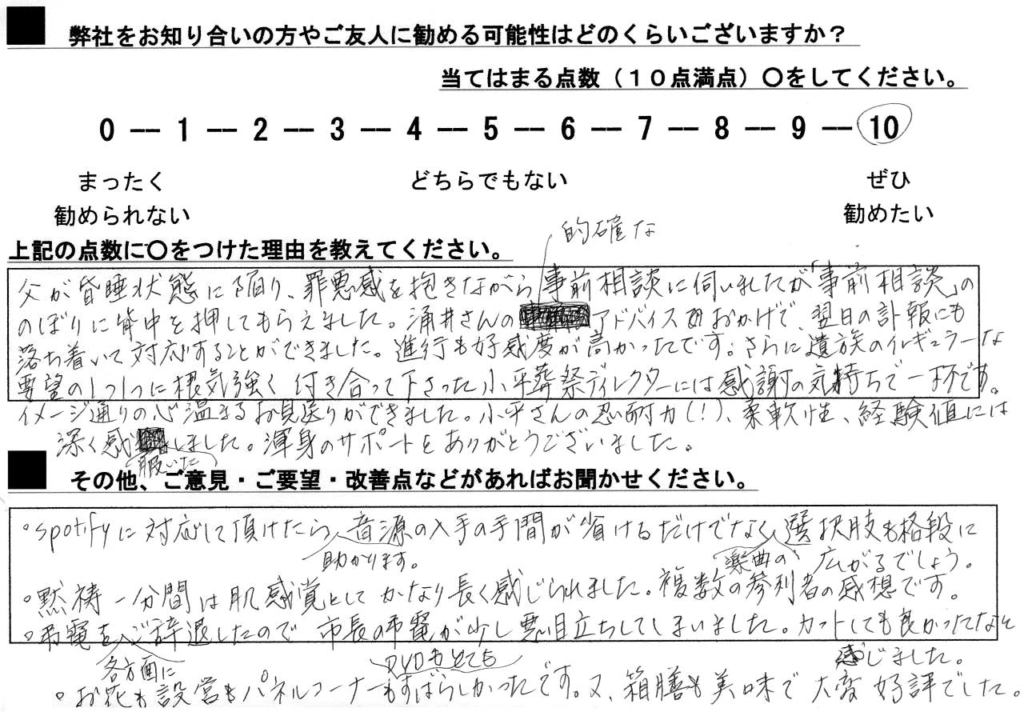 弊社をお知り合いの方やご友人に勧める可能性はどのくらいございますか？
当てはまる点数（１０点満点）〇をしてください。
0 -- 1 -- 2 -- 3 -- 4 -- 5 -- 6 -- 7 -- 8 -- 9 -- 10
まったく どちらでもない ぜひ
勧められない 勧めたい
上記の点数に〇をつけた理由を教えてください。
的確な
父が昏睡状態に陥り、罪悪感を抱きながら事前相談に伺いましたが「事前相談」の
のぼりに背中を押してもらえました。涌井さんのアドバイスのおかげで、翌日の訃報にも
落ち着いて対応することができました。進行も好感度が高かったです。さらに遺族のイレギュラーな
要望の1つ1つに根気強く付き合って下さった小平葬祭ディレクターには感謝の気持ちで一杯です。
イメージ通りの心温まるお見送りができました。小平さんの忍耐力(！)、柔軟性、経験値には
深く感しました。渾身のサポートをありがとうございました。
服いた
その他、ご意見・ご要望・改善点などがあればお聞かせください。
・spotifyに対応して頂けたら、音源の入手の手間が省けるだけでなく選択肢も格段に
助かります。 楽曲の 広がるでしょう。
・黙祷一分間は肌感覚としてかなり長く感じられました。複数の参列者の感想です。
・弔電をご辞退したので市長の弔電が少し悪目立ちしてしまいました。カットしても良かったなと
各方面に DVDもとても 感じました。
・お花も設営もパネルコーナーもすばらしかったです。又、箱膳も美味で大変好評でした。